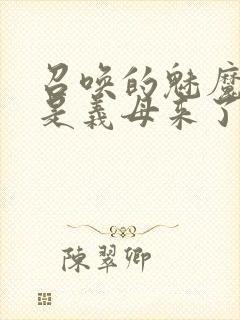 召唤的魅魔
是義母来了
陳翠卿